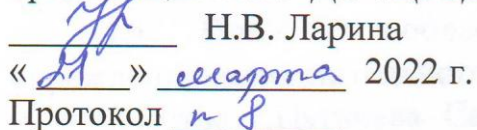 Н.В. Ларина
« 21 » марта 2022 г.
Протокол № 8